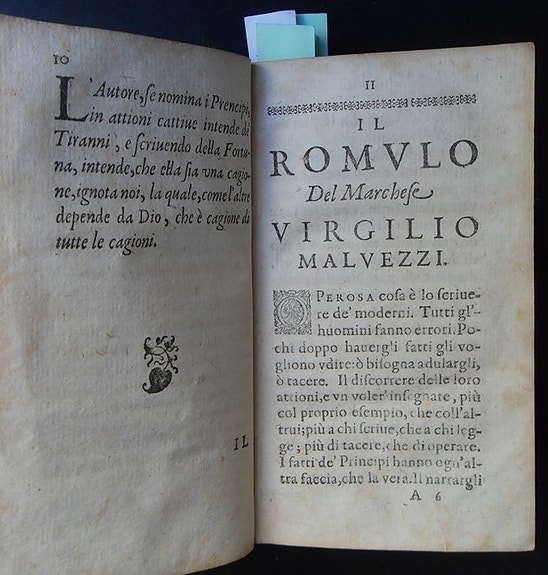 10
L'Autore, se nomina i Prencipi,
in attioni cattiue intende de'
Tiranni, e scriuendo della Fortu-
na, intende, che ella sia vna cagio-
ne, ignota noi, la quale, come l'altre
depende da Dio, che è cagione di
tutte le cagioni.
IL
11
IL
ROMVLO
Del Marchese
VIRGILIO
MALVEZZI.
OPEROSA cosa è lo scriue-
re de' moderni. Tutti gl'-
huomini fanno errori. Po-
chi doppo hauergli fatti gli vo-
gliono vdire: ò bisogna adulargli,
ò tacere. Il discorrere delle loro
attioni, e vn voler' insegnare, più
col proprio esempio, che coll'al-
trui; più a chi scriue, che a chi leg-
ge; più di tacere, che di operare.
I fatti de' Principi hanno ogn'al-
tra faccia, che la vera. Il narrargli
A 6